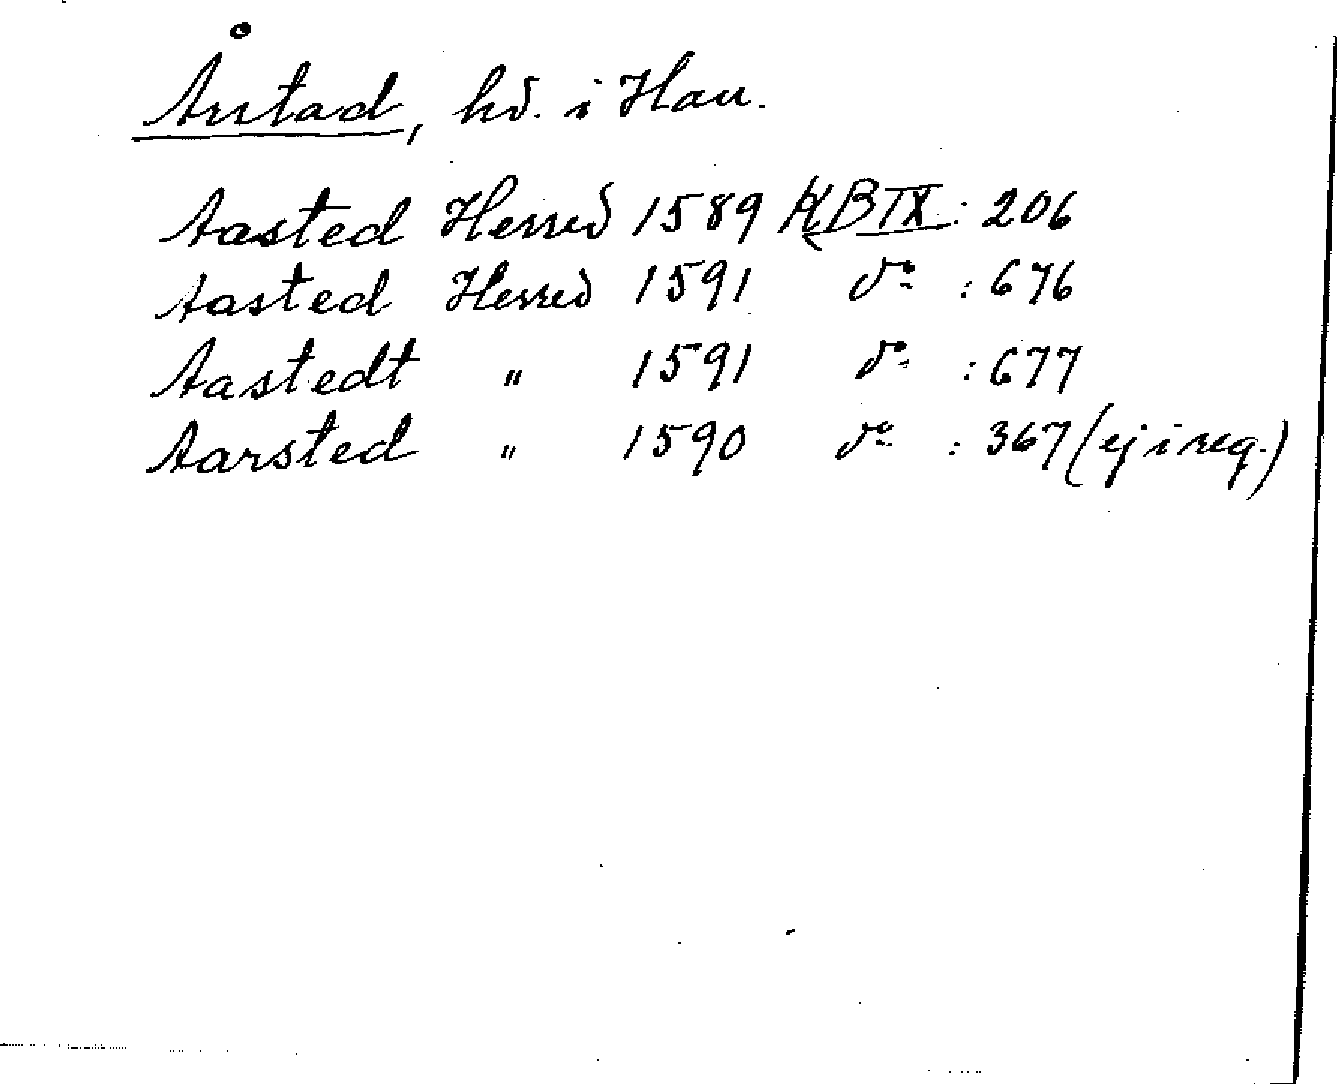 Årstad, hd. i Hall.
Aasted Herred 1589 KBIX: 206
Aasted Herred 1591 do : 676
Aastedt " 1591 do : 677
Aarsted " 1590 do : 367 (ej i reg.)